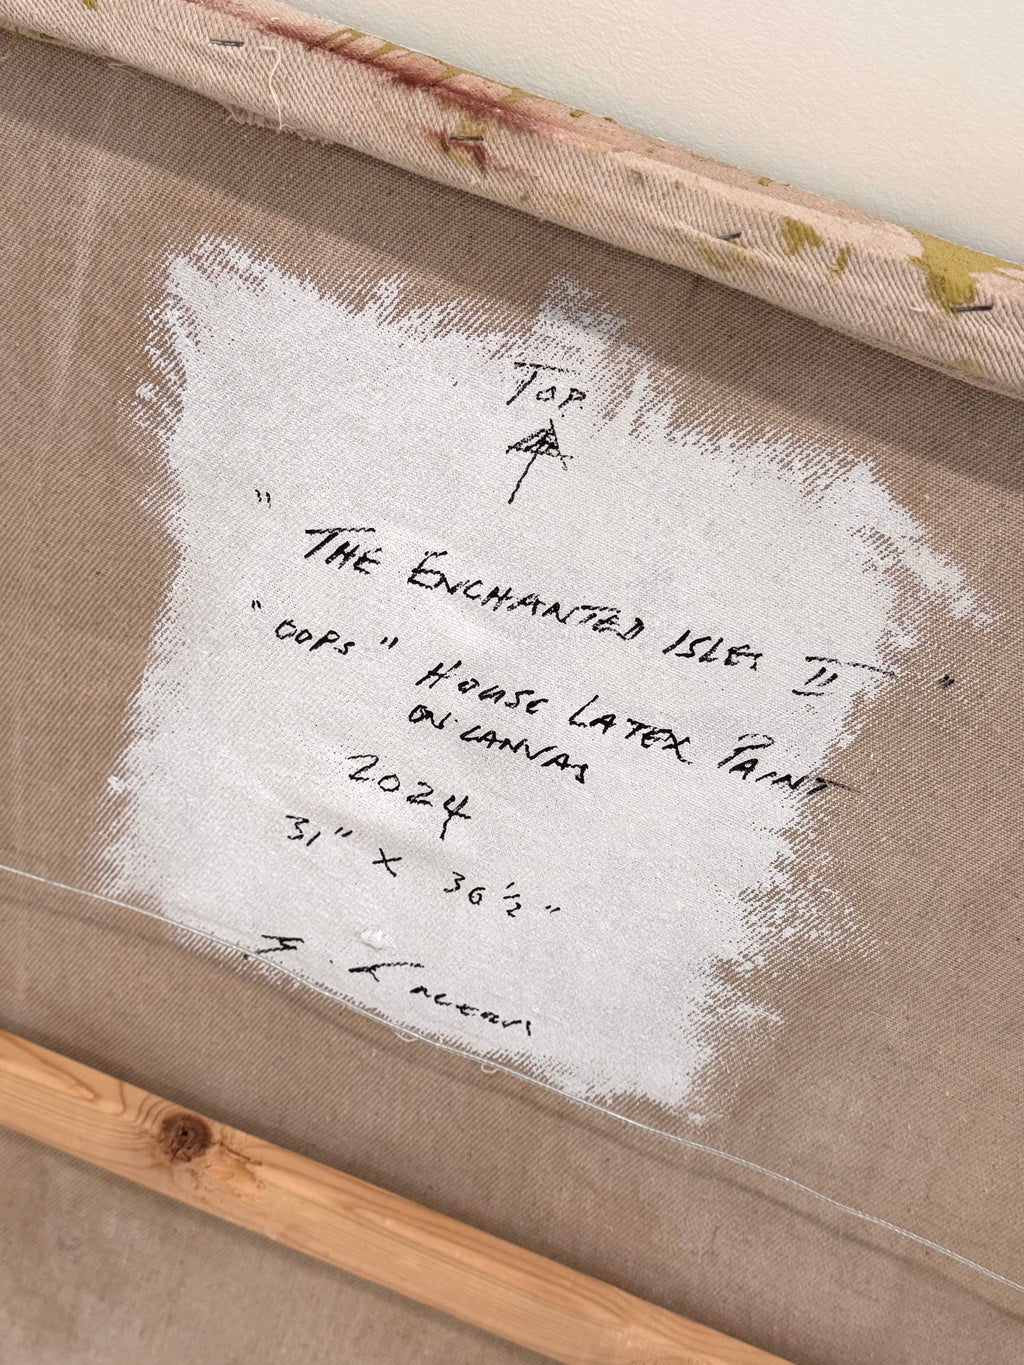 TOP
"THE ENCHANTED ISLES II"
"OOPS" HOUSE LATEX PAINT
ON CANVAS
2024
31" X 36 1/2"